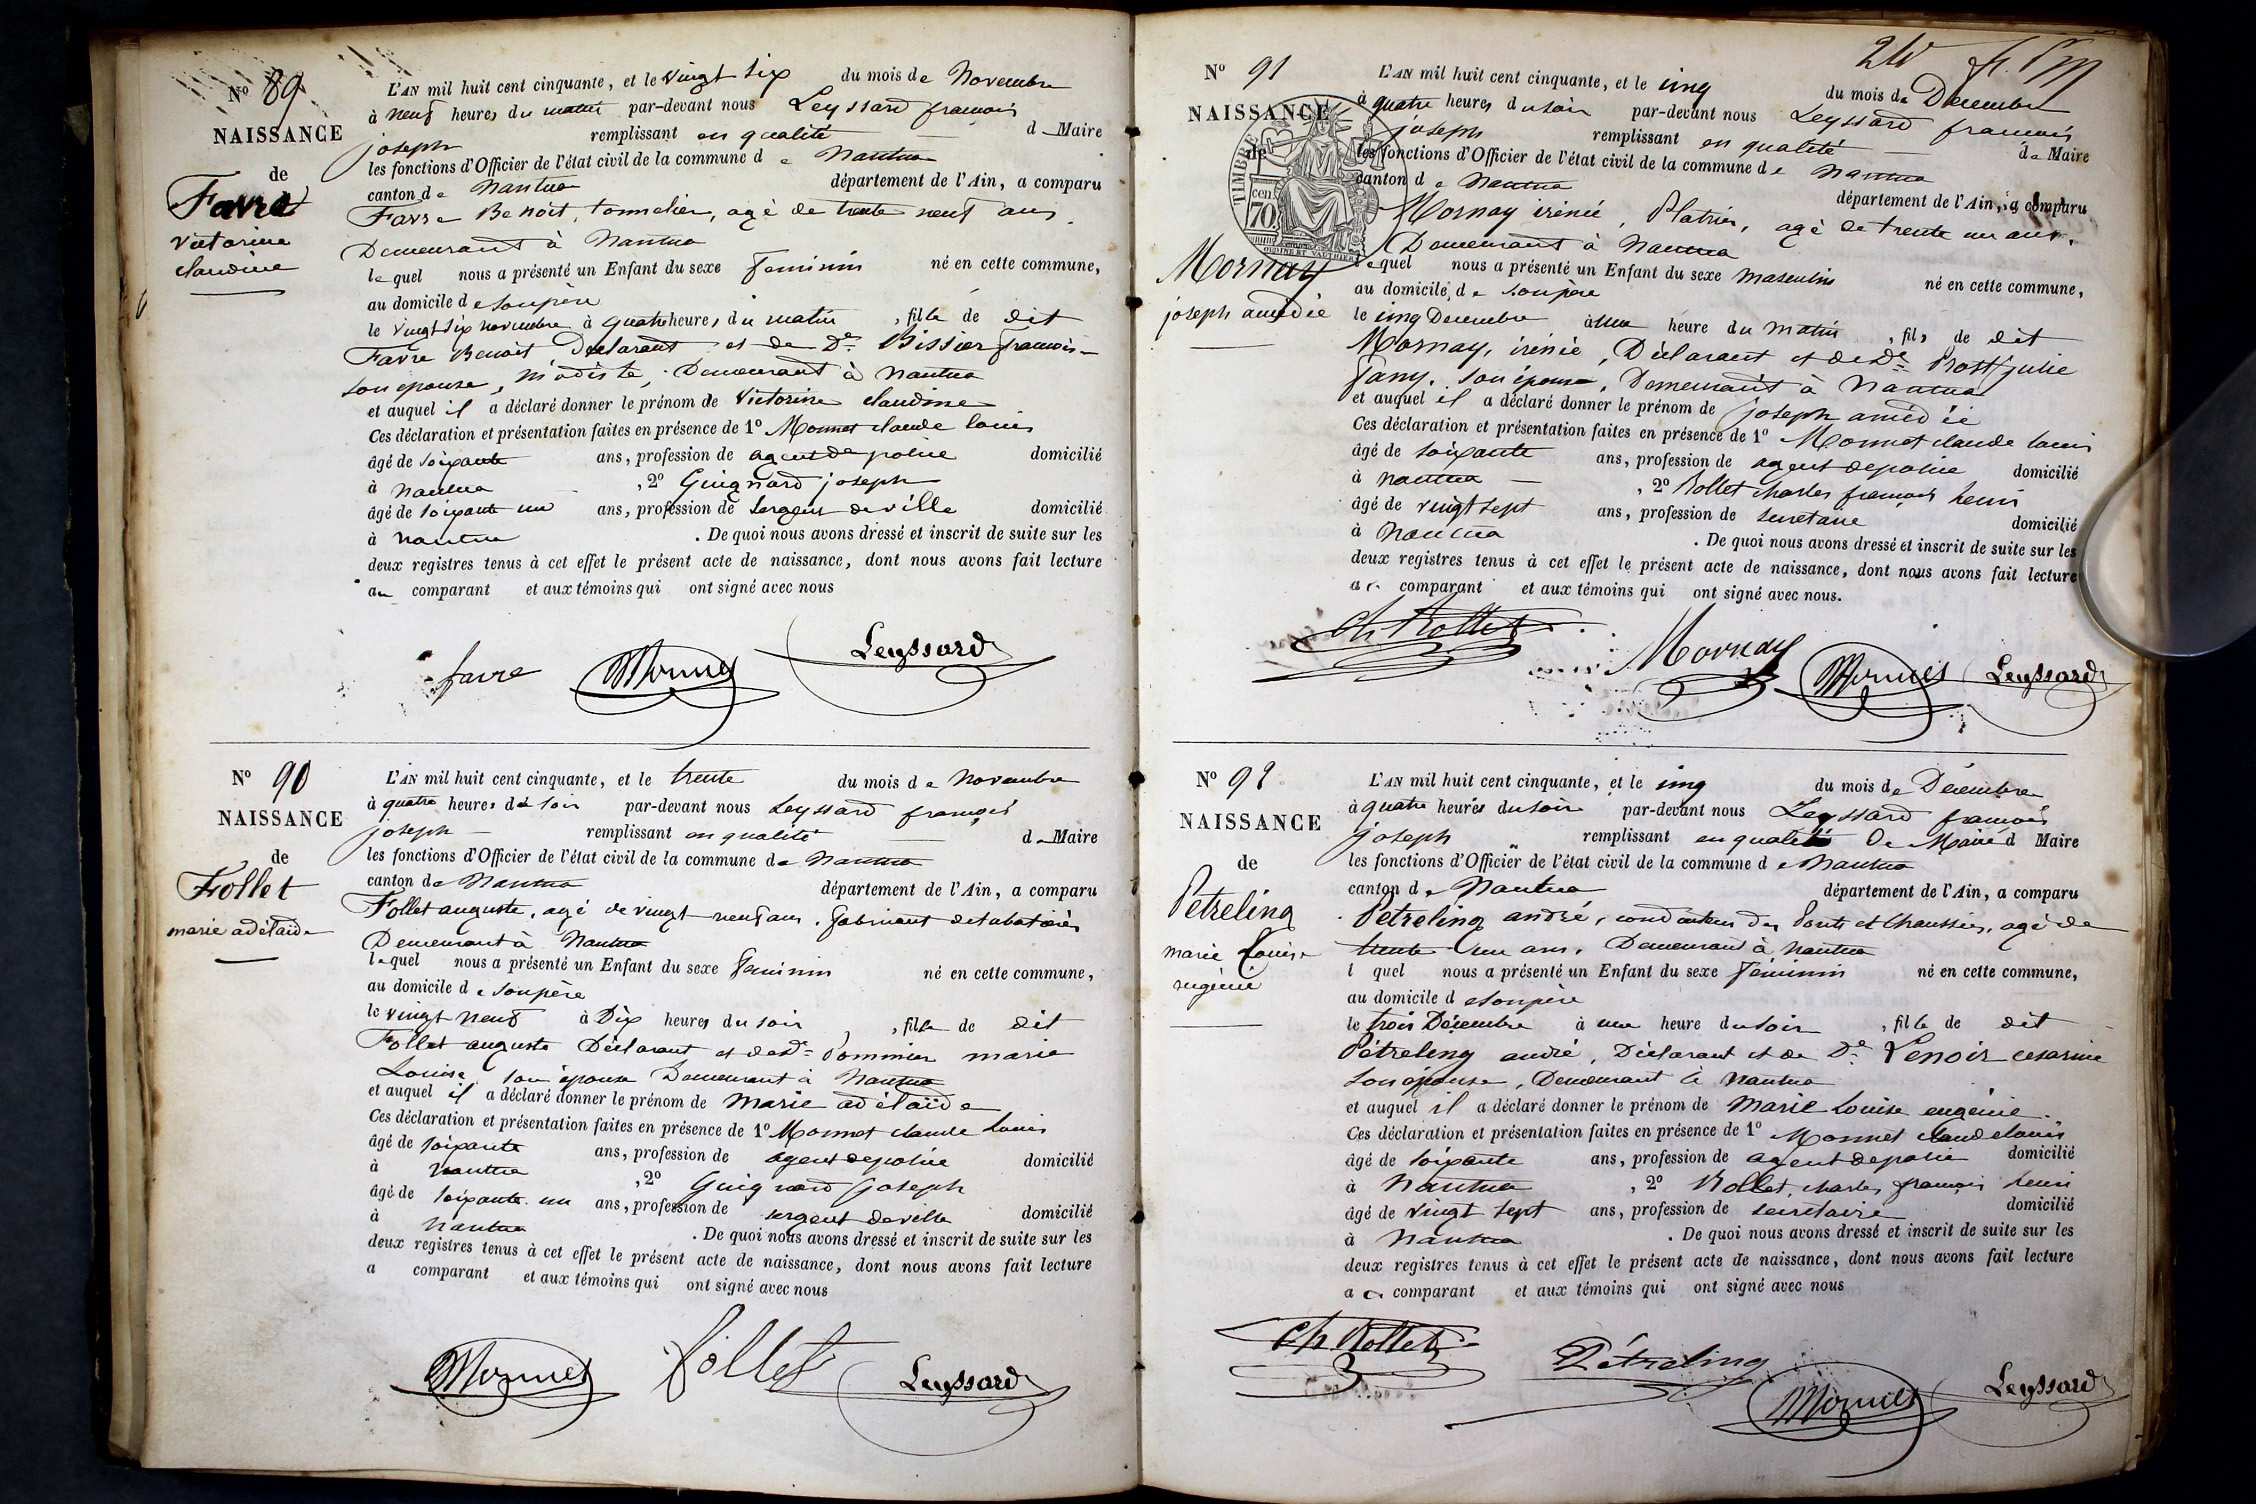 N° 89
NAISSANCE
de
Favre
victorine
claudine
L'AN mil huit cent cinquante, et le vingt six du mois de Novembre
à neuf heures du matin par-devant nous Leyssard françois
joseph remplissant en qualité de Maire
les fonctions d'Officier de l'état civil de la commune de Nantua
canton de Nantua département de l'Ain, a comparu
Favre Benoit, tonnelier, agé de trente neuf ans
Demeurant à Nantua
lequel nous a présenté un Enfant du sexe feminin né en cette commune,
au domicile de son père
le vingt six novembre à quatre heures du matin, fille de dit
Favre Benoit, Déclarant et de De Bissier françoise
son epouse, modiste, Demeurant à Nantua
et auquel il a déclaré donner le prénom de Victorine claudine
Ces déclaration et présentation faites en présence de 1° Monnet claude louis
âgé de soixante ans, profession de agent de police domicilié
à nantua, 2° Guignard joseph
âgé de soixante un ans, profession de sergent de ville domicilié
à nantua. De quoi nous avons dressé et inscrit de suite sur les
deux registres tenus à cet effet le présent acte de naissance, dont nous avons fait lecture
au comparant et aux témoins qui ont signé avec nous
favre Monnet Leyssard
N° 90
NAISSANCE
de
Follet
marie adélaïde
L'AN mil huit cent cinquante, et le trente du mois de Novembre
à quatre heures du soir par-devant nous Leyssard françois
joseph remplissant en qualité de Maire
les fonctions d'Officier de l'état civil de la commune de Nantua
canton de Nantua département de l'Ain, a comparu
Follet auguste, agé de vingt neuf ans, fabricant de tabatières
Demeurant à Nantua
lequel nous a présenté un Enfant du sexe feminin né en cette commune,
au domicile de son père
le vingt neuf à Dix heures du soir, fille de dit
Follet auguste Déclarant et de De Pommier marie
Louise son épouse Demeurant à Nantua
et auquel il a déclaré donner le prénom de Marie adélaïde
Ces déclaration et présentation faites en présence de 1° Monnet claude louis
âgé de soixante ans, profession de agent de police domicilié
à nantua, 2° Guignard joseph
âgé de soixante un ans, profession de sergent de ville domicilié
à Nantua. De quoi nous avons dressé et inscrit de suite sur les
deux registres tenus à cet effet le présent acte de naissance, dont nous avons fait lecture
a comparant et aux témoins qui ont signé avec nous
Monnet follet Leyssard
N° 91
NAISSANCE
de
TIMBRE
70
Mornay
joseph amédée
L'AN mil huit cent cinquante, et le cinq du mois de Décembre
à quatre heures du soir par-devant nous Leyssard françois
joseph remplissant en qualité de Maire
les fonctions d'Officier de l'état civil de la commune de Nantua
canton de Nantua département de l'Ain, a comparu
Mornay irénée, Platrier, agé de trente un ans,
Demeurant à Nantua
lequel nous a présenté un Enfant du sexe masculin né en cette commune,
au domicile de son père
le cinq Decembre à une heure du matin, fils de dit
Mornay, irénée, Déclarant et de De Prost julie
fany, son épouse, Demeurant à Nantua
et auquel il a déclaré donner le prénom de joseph amédée
Ces déclaration et présentation faites en présence de 1° Monnet claude louis
âgé de soixante ans, profession de agent de police domicilié
à nantua, 2° Rollet charles françois henri
âgé de vingt sept ans, profession de secretaire domicilié
à Nantua. De quoi nous avons dressé et inscrit de suite sur les
deux registres tenus à cet effet le présent acte de naissance, dont nous avons fait lecture
au comparant et aux témoins qui ont signé avec nous.
Ch Rollet Mornay Monnet Leyssard
N° 92
NAISSANCE
de
Petreling
marie Louise
eugénie
L'AN mil huit cent cinquante, et le cinq du mois de Décembre
à quatre heures du soir par-devant nous Leyssard françois
joseph remplissant en qualité De Maire d Maire
les fonctions d'Officier de l'état civil de la commune de Nantua
canton de Nantua département de l'Ain, a comparu
Petreling andré, conducteur des Ponts et Chaussées, agé de
trente un ans, Demeurant à Nantua
l quel nous a présenté un Enfant du sexe féminin né en cette commune,
au domicile de son père
le trois Décembre à une heure du soir, fille de dit
Pétreling andré, Déclarant et de De Lenoir cesarine
son épouse, Demeurant à Nantua
et auquel il a déclaré donner le prénom de Marie Louise eugénie.
Ces déclaration et présentation faites en présence de 1° Monnet claude louis
âgé de soixante ans, profession de agent de police domicilié
à Nantua, 2° Rollet, charles françois henri
âgé de vingt sept ans, profession de secretaire domicilié
à Nantua. De quoi nous avons dressé et inscrit de suite sur les
deux registres tenus à cet effet le présent acte de naissance, dont nous avons fait lecture
au comparant et aux témoins qui ont signé avec nous
Ch Rollet Pétreling Monnet Leyssard